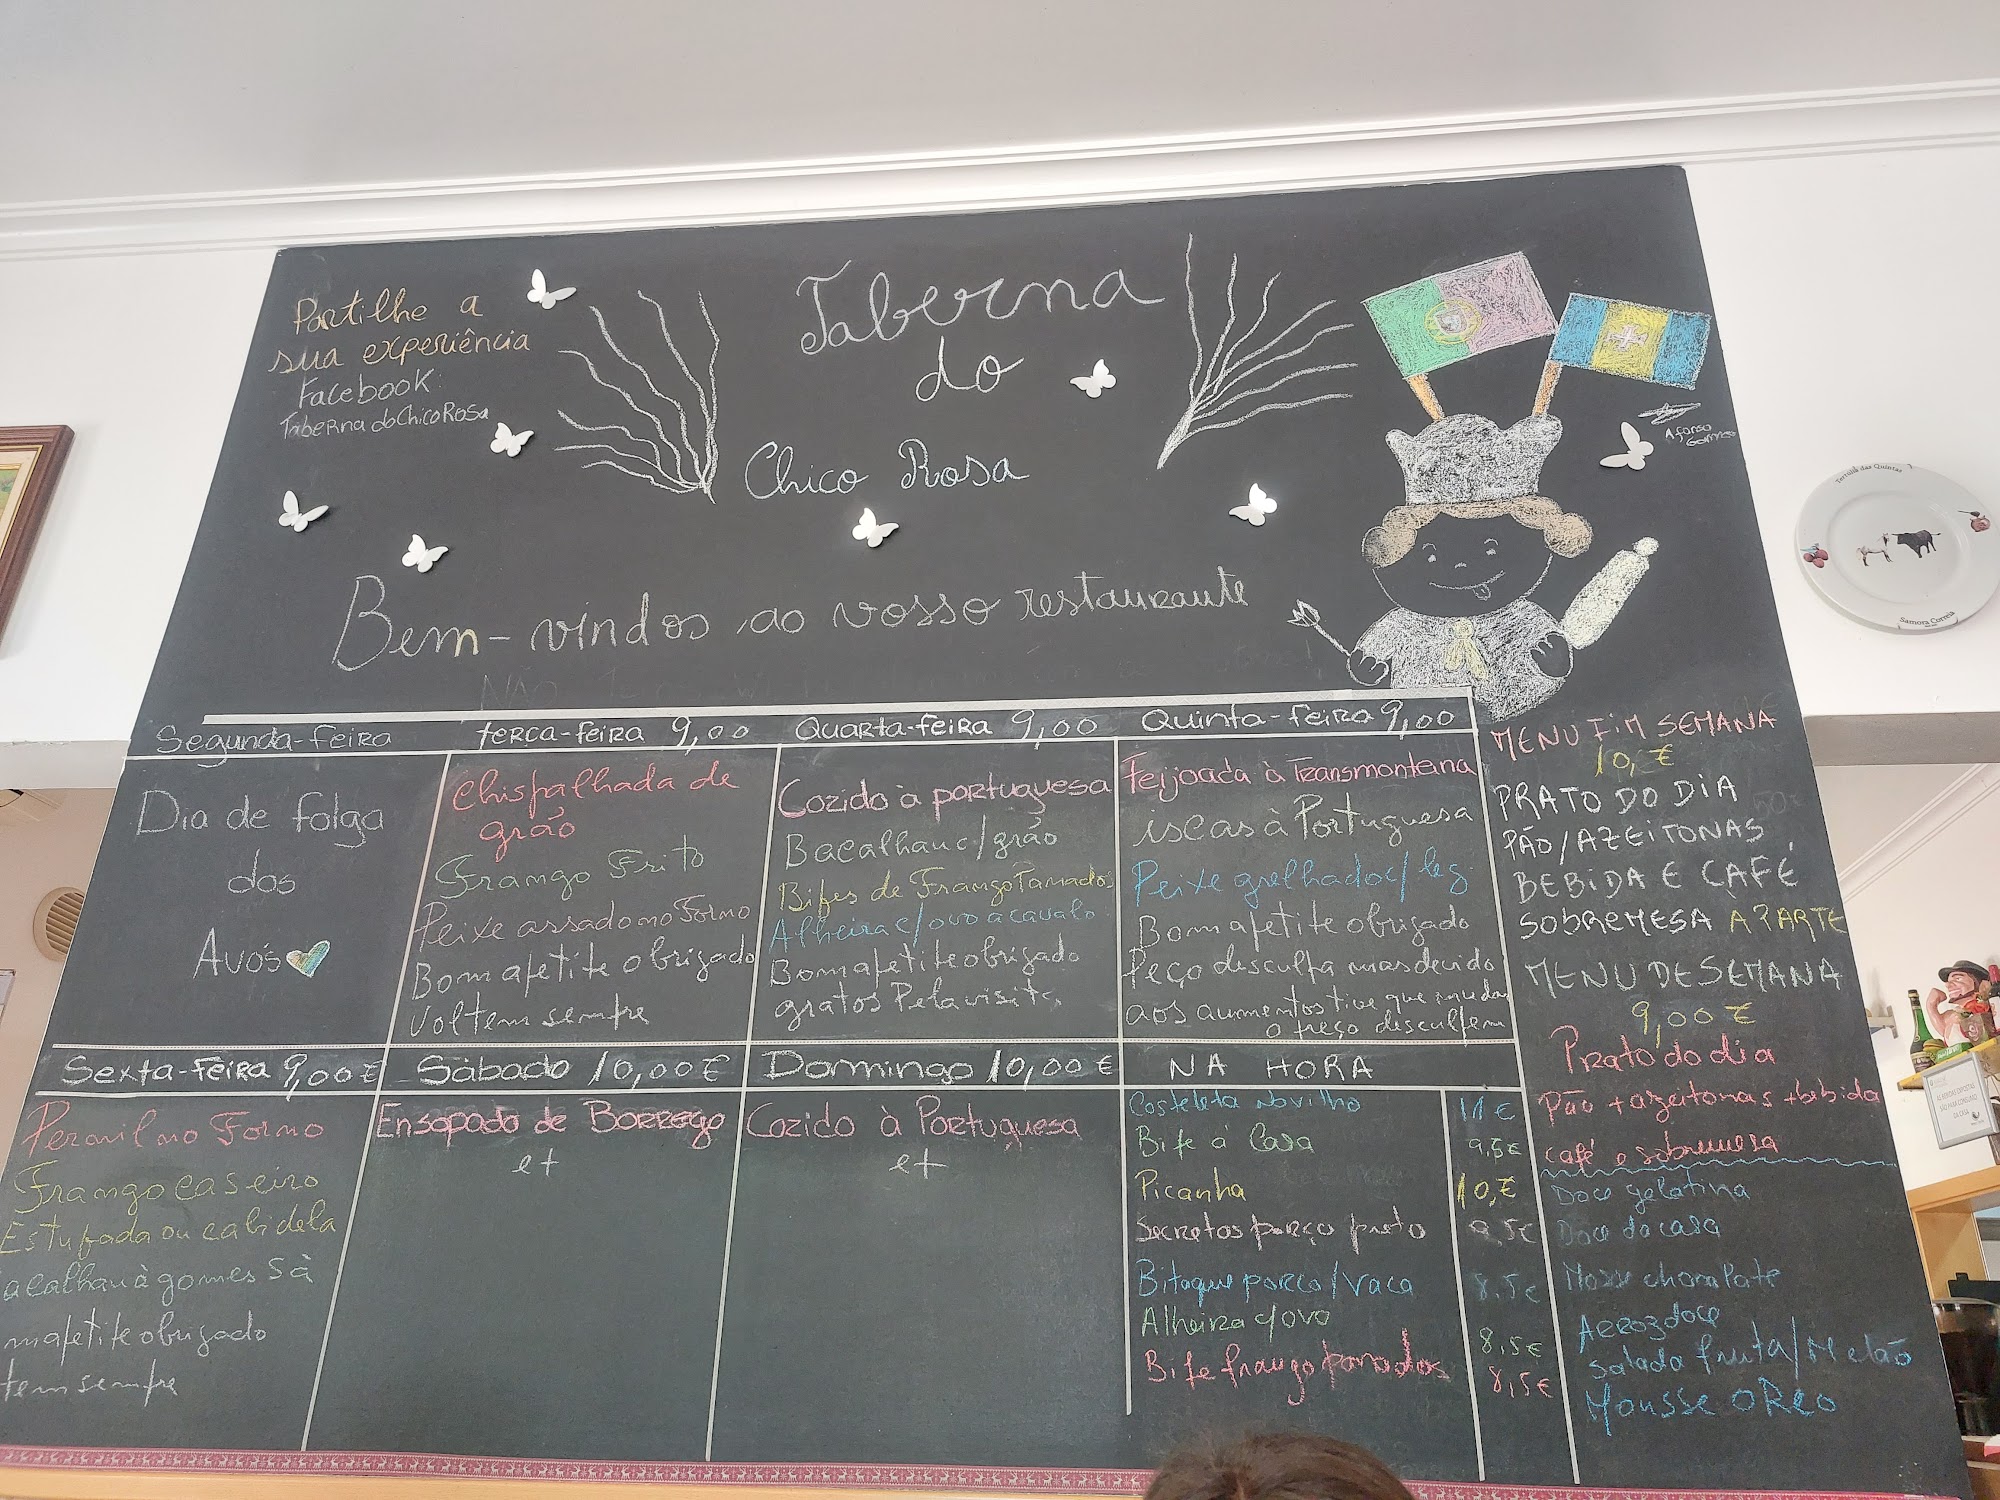 Partilhe a
sua experiência
Facebook:
Taberna do Chico Rosa
Taberna
do
Chico Rosa
Afonso
Gomes
Bem-vindos ao vosso restaurante
Segunda-feira
Dia de folga
dos
Avós
terça-feira 9,00
Chispalhada de
grão
Frango Frito
Peixe assado no Forno
Bom apetite obrigado
Voltem sempre
Quarta-feira 9,00
Cozido à portuguesa
Bacalhau c/grão
Bifes de Frango Panados
Alheira c/ovo a cavalo
Bom apetite obrigado
gratos Pela visita
Quinta-feira 9,00
Feijoada à Transmontana
iscas à Portuguesa
Peixe grelhado c/leg
Bom apetite obrigado
Peço desculpa mas devido
aos aumentos tive que mudar
o preço desculpem
Sexta-feira 9,00 €
Pernil no Forno
Frango caseiro
Estufada ou cabidela
acalhau à gomes Sà
mapetite obrigado
tem sempre
Sàbado 10,00 €
Ensopado de Borrego
et
Domingo 10,00 €
Cozido à Portuguesa
et
NA HORA
Costeleta Novilho 11 €
Bife á Casa 9,5 €
Picanha 10,€
Secretos porco preto 9,5€
Bitoque porco/vaca 8.5€
Alheira c/ovo 8,5€
Bife frango panados 8,5€
MENU FIM SEMANA
10,€
PRATO DO DIA
PÃO/AZEITONAS
BEBIDA E CAFÉ
SOBREMESA APARTE
MENU DE SEMANA
9,00 €
Prato do dia
Pão + azeitonas + bebida
café e sobremesa
Doce gelatina
Doce da casa
Mosse chocolate
Arroz doce
Salada fruta/Melão
Mousse OREO
Tertulia das Quintas
Samora Correia